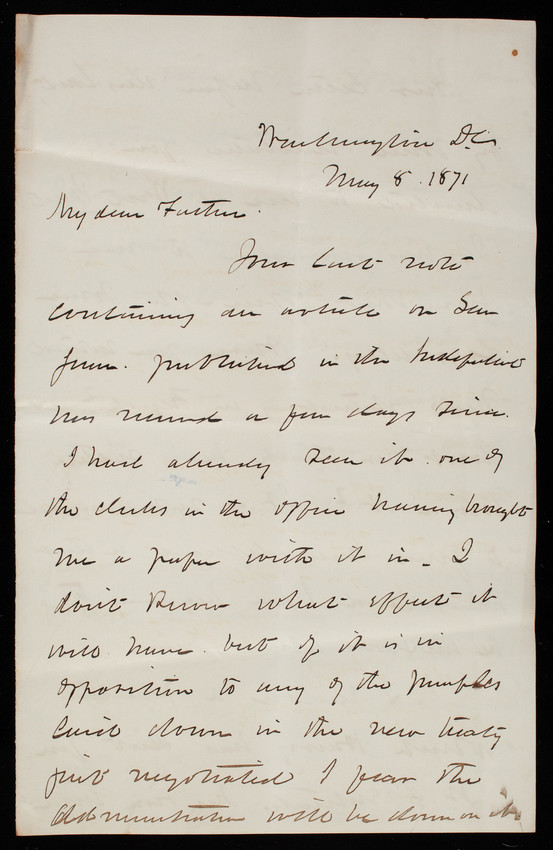 Washington D.C.
May 8. 1871
My dear Father.
Your last note
containing an article on San
Juan. published in the
was received a few days since.
I had already seen it. one of
the clerks in the office having brought
me a paper with it in - I
don't know what effect it
will have. but if it is in
opposition to any of the principles
laid down in the new treaty
just negotiated I fear the
Administration will be down on it